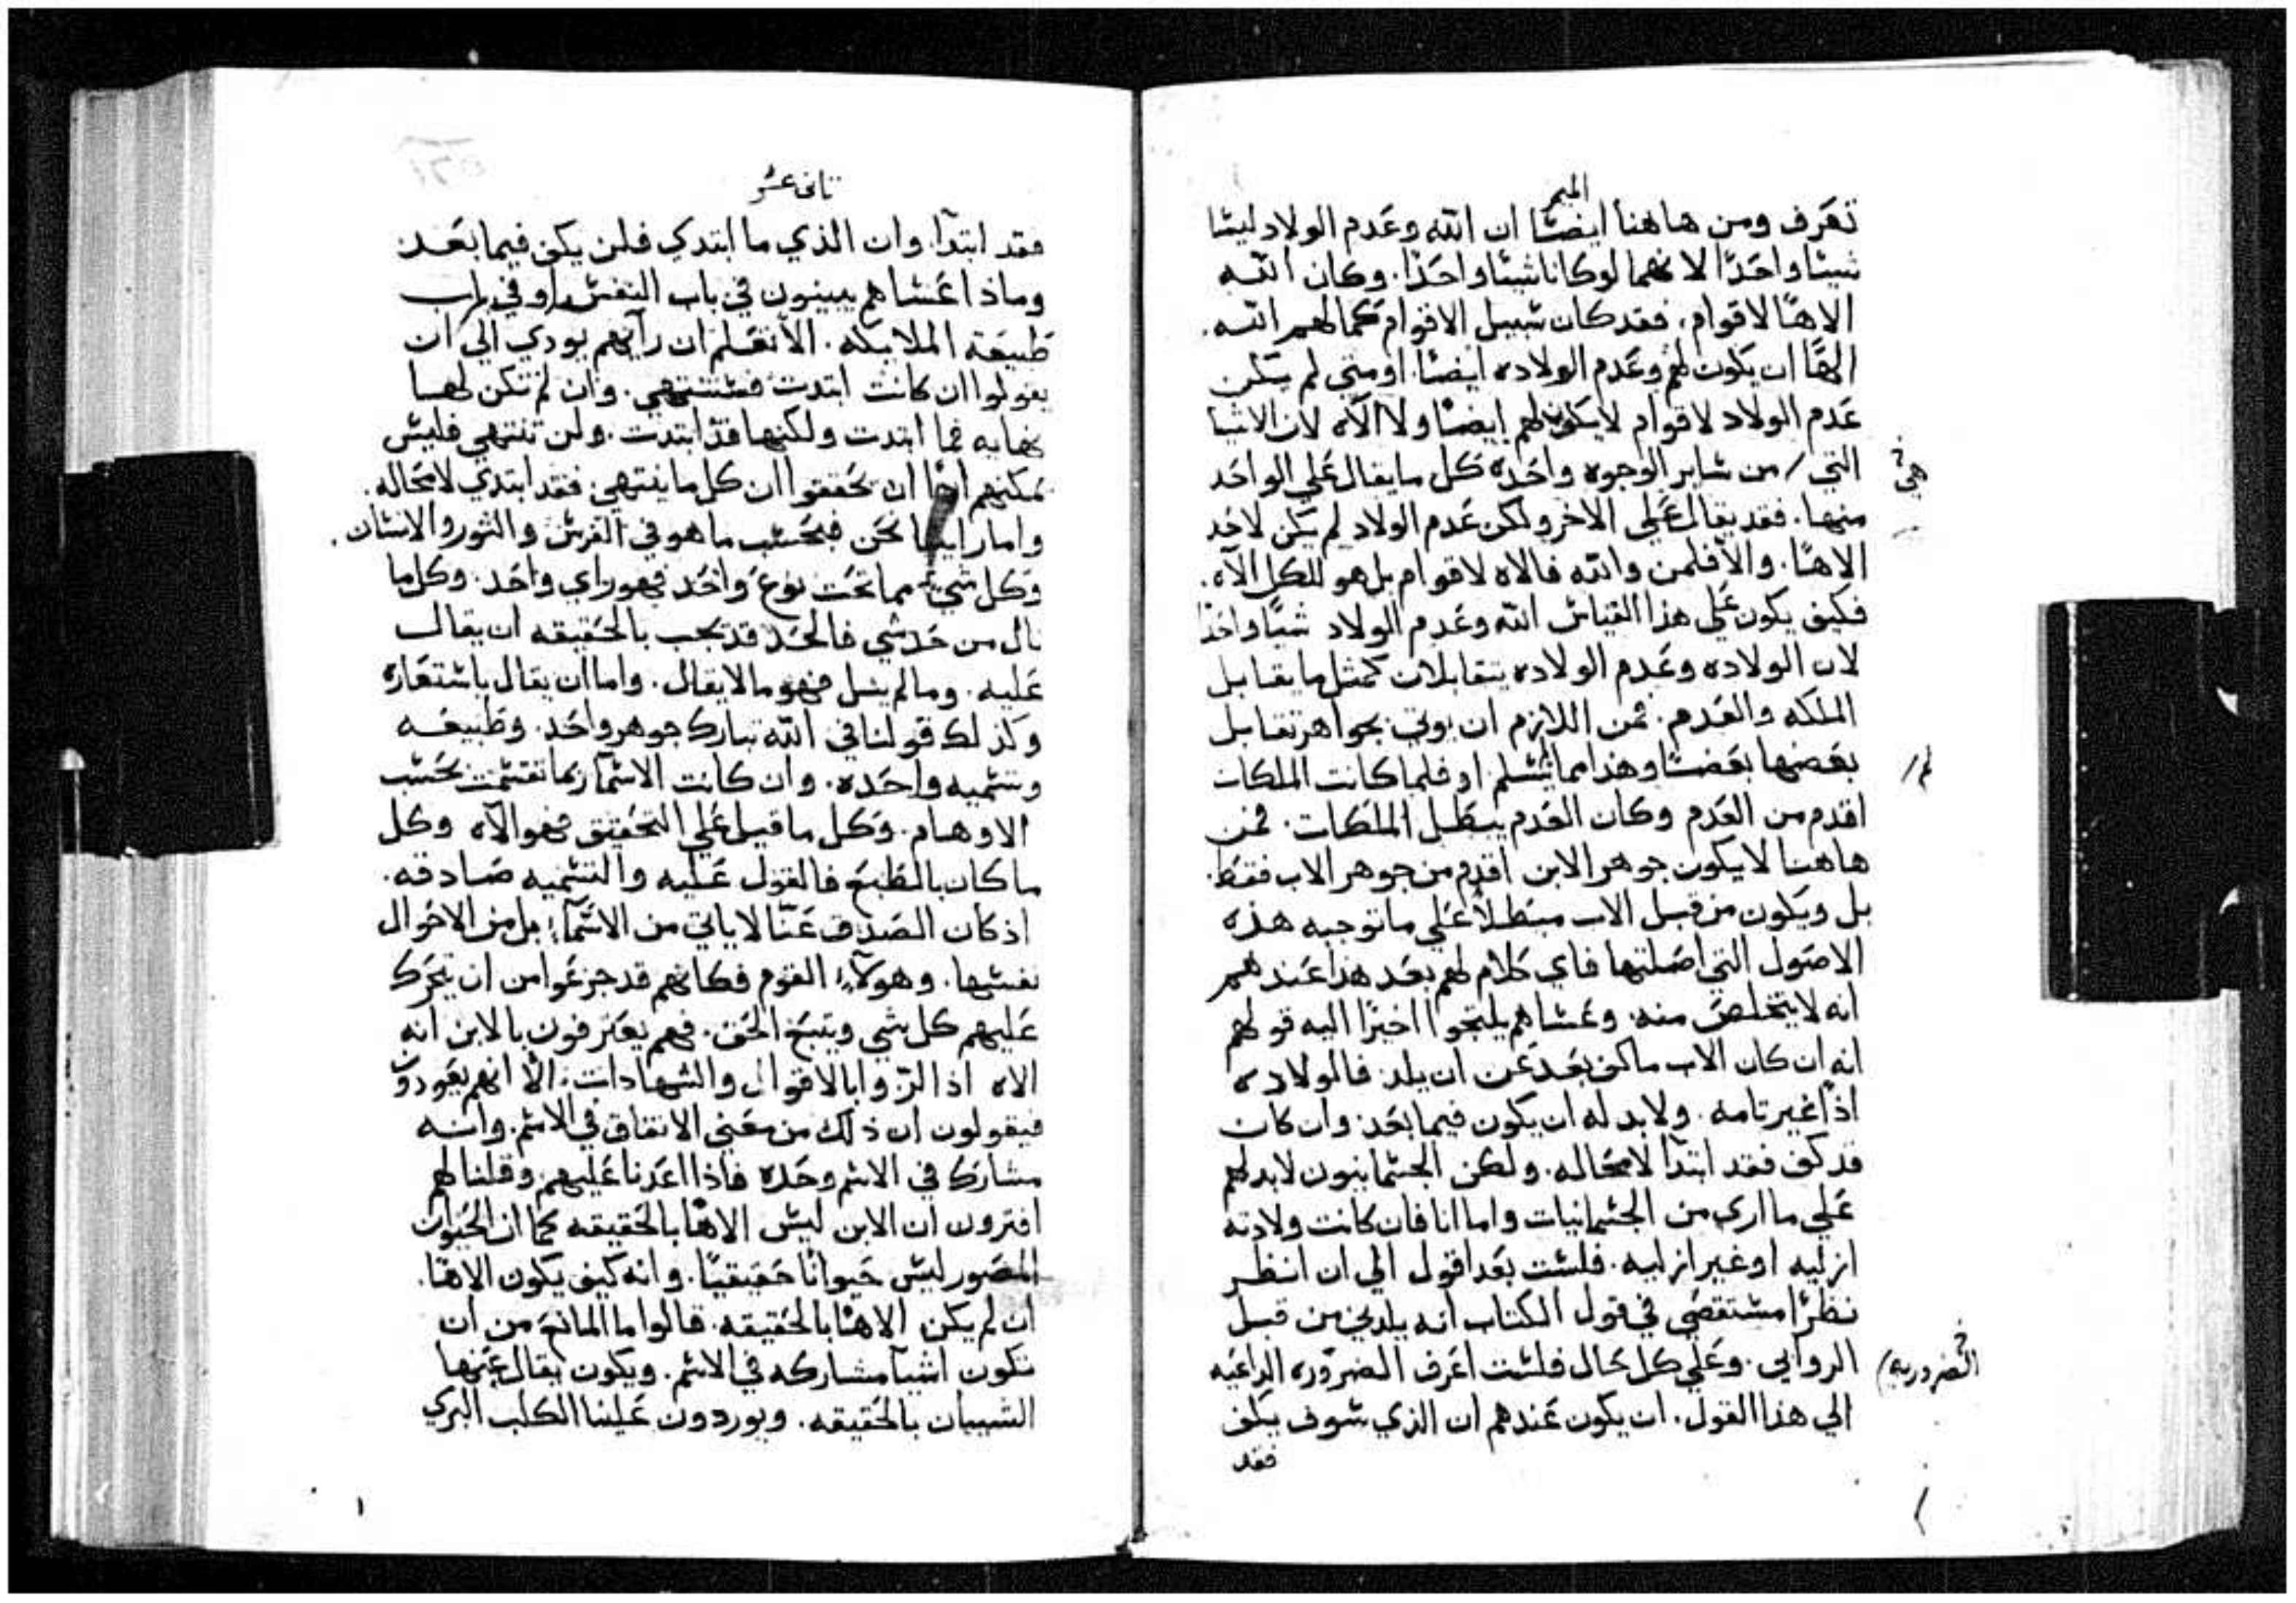 الميمر
تعرف ومن هاهنا ايضًا ان الله وعدم الولاد ليسَا
شيئا واحدًا لانهما لو كانا شيئا واحدًا. وكان الله
الاهًا لاقوام. فقد كان سبيل الاقوام كما لهم الله
الهًا ان يكون لهم وعدم الولاده ايضًا. او متي لم يكن
عدم الولاد لاقوام لا يكون لهم ايضًا ولا الاه لان الاشيا
التي / من ساير الوجوه واحده كل ما يقال علي الواحد
هي
منها. فقد يقال علي الاخر ولكن عدم الولاد لم يكن لاحد
الاهًا. والا فلمن والله فالاه لاقوام بل هو للكل الاه.
فكيف يكون علي هذا القياس الله وعدم الولاد شيًا واحدًا
لان الولاده وعدم الولاده يتقابلان كمثل ما يقابل
الملكه والعدم. فمن اللازم ان يوتي بجواهر تقابل
بعضها بعضًا وهذا مما يسلم او فلما كانت الملكات
لم /
اقدم من العدم وكان العدم يبطل الملكات. فمن
هاهنا لا يكون جوهر الابن اقدم من جوهر الاب فقط.
بل ويكون من قبل الاب مبطلاً علي ما توجبه هذه
الاصول التي اصلتها فاي كلام لهم بعد هذا عندهم
انه لا يتخلص منه. وعساهم يلتجوا اخيرًا اليه قولهم
انه ان كان الاب ما كف بعد عن ان يلد. فالولاده
اذًا غير تامه. ولا بد له ان يكون فيما بعد. وان كان
قد كف فقد ابتدا لا محاله. ولكن الجسمانيون لا بد لهم
علي ما اري من الجسمانيات واما انا فان كانت ولادته
ازليه او غير ازليه. فلست بعد اقول الي ان انظر
نظرًا مستقصي في قول الكتاب انه يلدني من قبل
الروابي. وعلي كل حال فلست اعرف الضروره الداعيه
الضروريه)
الي هذا القول. ان يكون عندهم ان الذي سوف يكف
فقد
ثاني عشر
فقد ابتدا. وان الذي ما ابتدي فلن يكف فيما بعد
وماذا عساهم يبينون في باب النفس او في باب
طبيعة الملايكه. الا نعلم ان رايهم يودي الي ان
يقولوا ان كانت ابتدت فستنتهي. وان لم تكن لها
نهايه فما ابتدت ولكنها قد ابتدت. ولن تنتهي فليس
يمكنهم اذًا ان يحققوا ان كل ما ينتهي. فقد ابتدي لا محاله.
واما راينا نحن فبحسب ما هو في الفرس والثور والانسان.
وكل شي مما تحت نوع واحد فهو راي واحد. وكل ما
نال من حد شي فالحد قد يجب بالحقيقه ان يقال
عليه. وما لم ينل فهو ما لا يقال. واما ان يقال باستعاره
وكذلك قولنا في الله تبارك جوهر واحد. وطبيعه
وتسميه واحده. وان كانت الاسما ربما تقسمت بحسب
الاوهام. وكل ما قيل علي التحقيق فهو الاه وكل
ما كان بالطبع فالقول عليه والتسميه صادقه.
اذ كان الصدق عنا لا ياتي من الاسمآ، بل من الاحوال
نفسها. وهولآء القوم فكانهم قد جزعوا من ان يتحرك
عليهم كل شي ويتبع الحق. فهم يعترفون بالابن انه
الاه اذا الزوا بالاقوال والشهادات. الا انهم يعودون
فيقولون ان ذلك من معني الاتفاق في الاسم. وانه
مشارك في الاسم وحده فاذا اعدنا عليهم وقلنا لهم
افترون ان الابن ليس الاهًا بالحقيقه كما ان الحيوان
المصور ليس حيوانًا حقيقيًا. وانه كيف يكون الاهًا.
ان لم يكن الاهًا بالحقيقه. قالوا ما المانع من ان
تكون اشيآ مشاركه في الاسم. ويكون يقال عنها
الشيبان بالحقيقه. ويوردون علينا الكلب البري